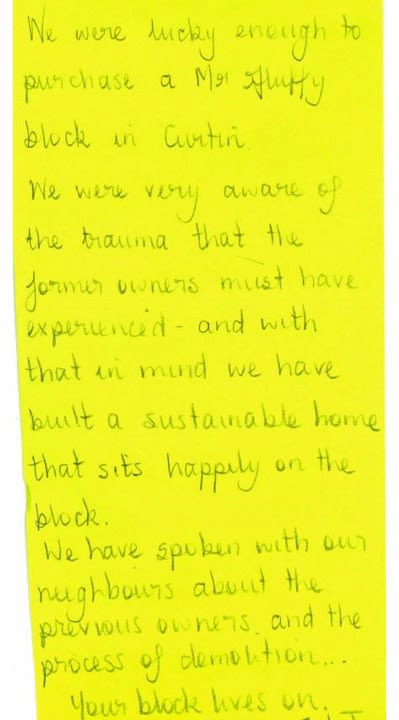 We were lucky enough to
purchase a Mr Fluffy
block in Curtin.
We were very aware of
the trauma that the
former owners must have
experienced - and with
that in mind we have
built a sustainable home
that sits happily on the
block.
We have spoken with our
neighbours about the
previous owners and the
process of demolition...
Your block lives on.